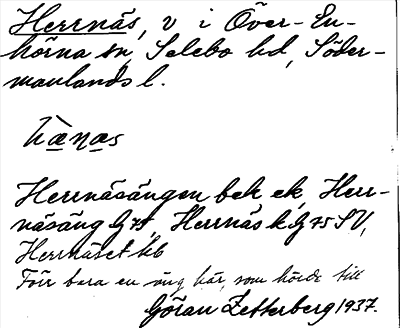 Herrnäs, v i Över-En-
hörna sn, Selebo hd, Söder-
manlands l.
hæ̀nas
Herrnäsängen bek ek, Herr-
näsäng G 75, Herrnäs k, G 75 SV,
Herrnäset kb
Förr bara en äng här, som hörde till
Göran Zetterberg 1937.